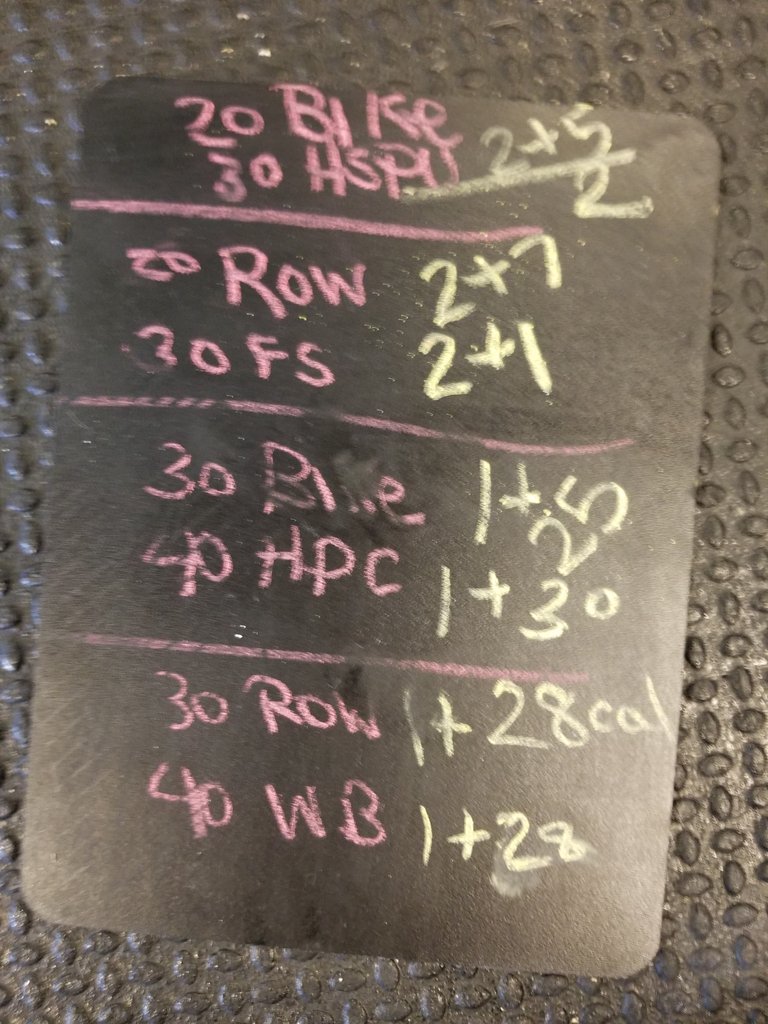 20 BIKe 2+5
30 HSPU 2
20 ROW 2+7
30 FS 2+1
30 BIKe 1+.5
25
40 HPC 1+30
30 ROW 1+28cal
40 WB 1+28